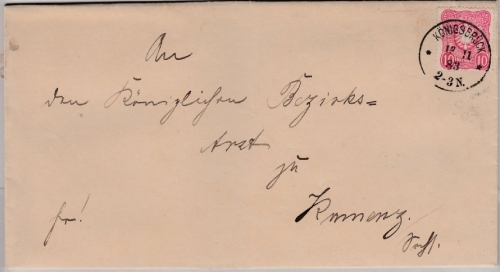 An
den Königlichen Bezirks=
Arzt
zu
fr!
Kamenz.
Sachs.
KÖNIGSBRÜCK
12 11
83
2-3 N.
10 10